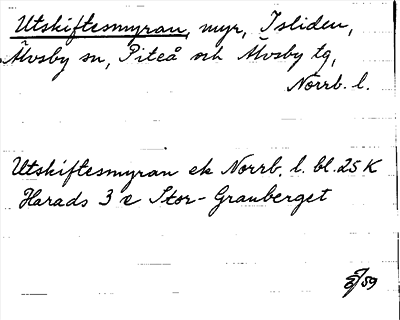 Utskiftesmyran, myr, Isliden,
Älvsby sn, Piteå och Älvsby tg,
Norrb. l.
Utskiftesmyran ek Norrb. l. bl. 25 K
Harads 3 e Stor-Granberget
/59